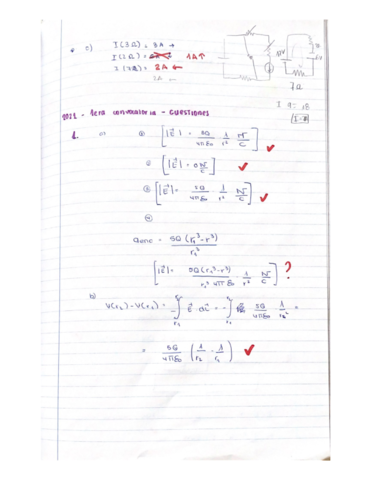 c) I(3Ω) = 3A →
1A ↑
2A ←
10V
7Ω
2021 - 1era convocatoria - CUESTIONES
1. a) ① [|E⃗| = 5Q/4πε₀ · 1/r² N/C] ✓
② [|E⃗| = 0 N/C] ✓
③ [|E⃗| = 5Q/4πε₀ · 1/r² N/C] ✓
④
Qenc = 5Q (r₁³ - r³)/r₁³
[|E⃗| = 5Q (r₁³ - r³)/r₁³ 4πε₀ · 1/r² N/C] ?
b) V(r₂) - V(r₁) = - ∫ E⃗ · dl⃗ = - ∫ 5Q/4πε₀ 1/r² =
= 5Q/4πε₀ (1/r₂ - 1/r₁) ✓